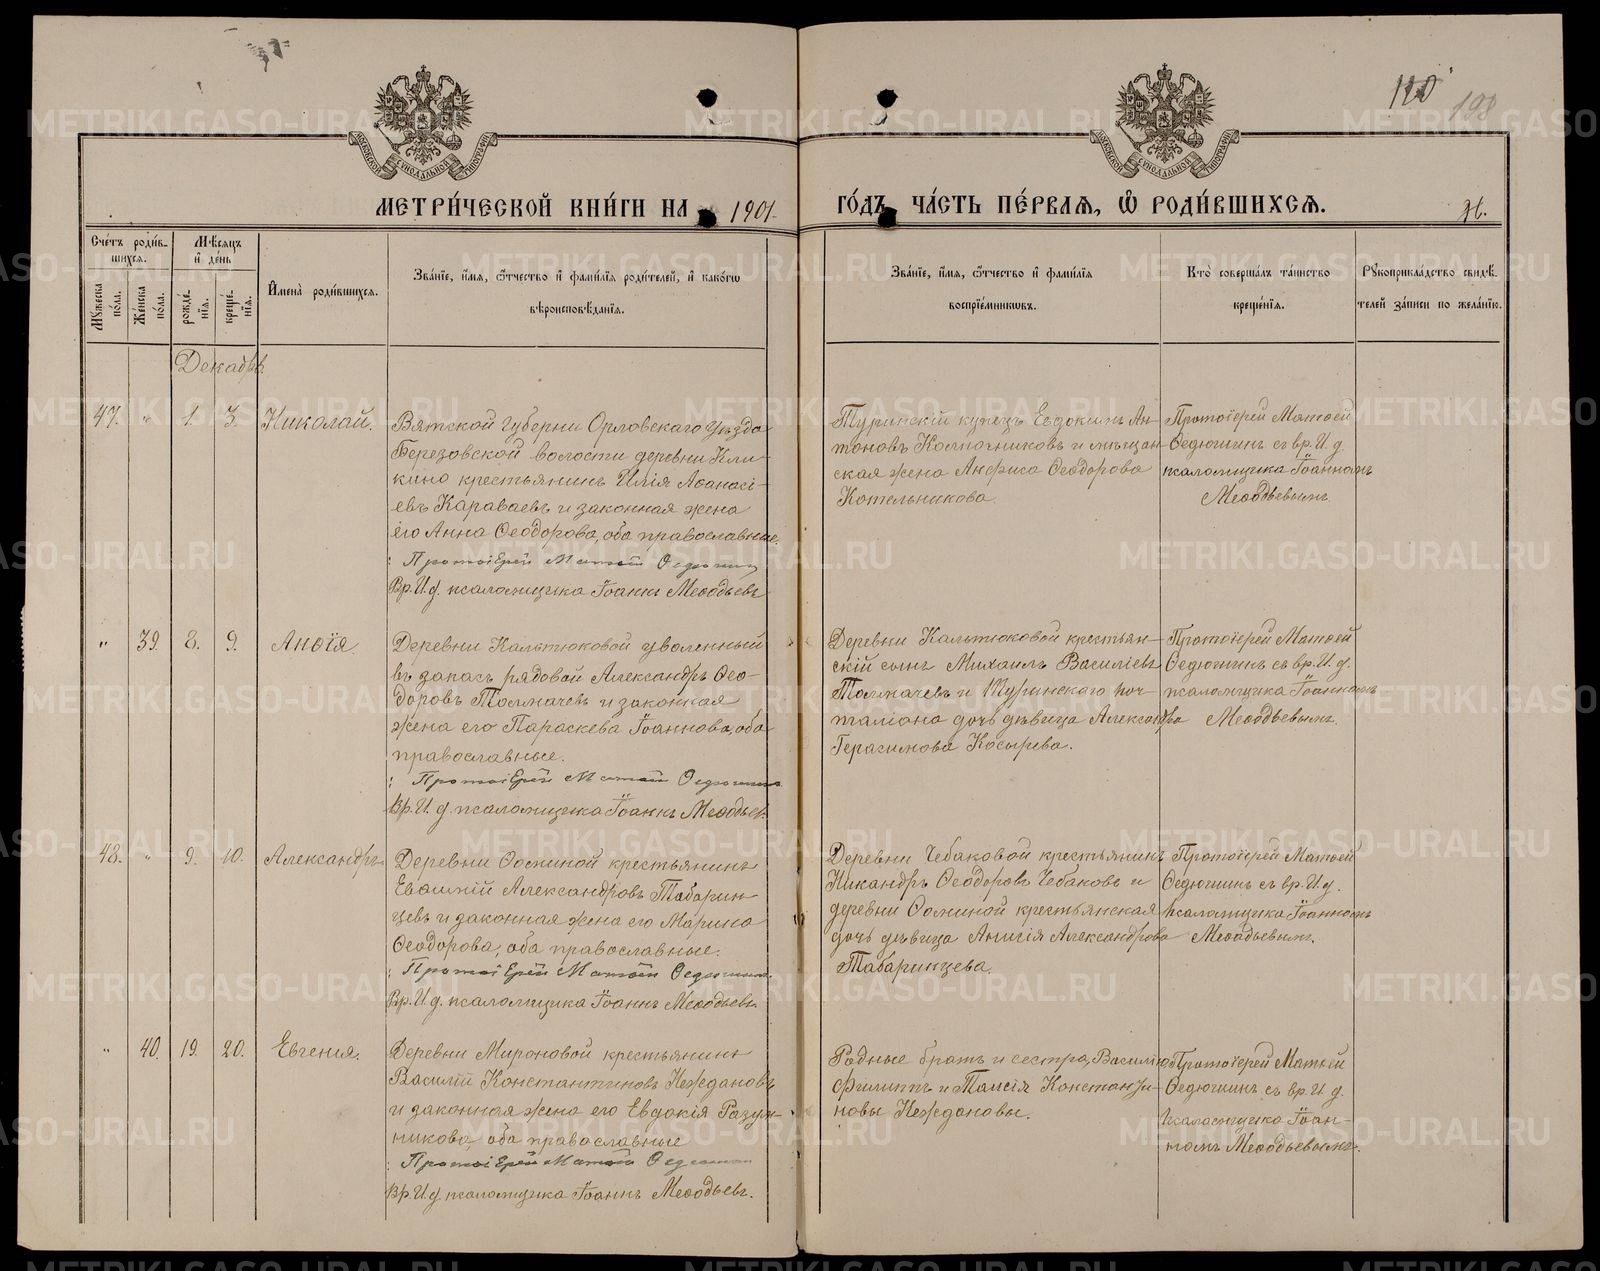 110
198
МЕТРИ́ЧЕСКОЙ КНИ́ГИ НА 1901
ГО́ДЪ, ЧА́СТЬ ПЕ́РВАЯ, Ѽ РОДИ́ВШИХСЯ.
Сче́тъ роди́в-
шихся.
Мѣ́сяцъ
и҆ де́нь
Мꙋжеска по́ла.
Же́нска по́ла.
рожде́-
нїя.
креще́-
нїя.
И҆мена̀ роди́вшихся.
Зва́нїе, и҆́мя, ѻ҆́тчество и҆ фами́лїя роди́телей, и҆ како́гѡ
вѣроисповѣ́данїя.
Зва́нїе, и҆́мя, ѻ҆́тчество и҆ фами́лїя
воспрїе́мникѡвъ.
Кто̀ соверша́лъ та́инство
креще́нїя.
Рꙋкоприкла́дство свидѣ́-
телей за́писи по жела́нїю.
Декабрь.
47. " 1. 3. Николай.
Вятской Губерни Орловскаго уѣзда
Березовской волости деревни Кли-
кино крестьянинъ Илія Аѳанасі-
евъ Караваевъ и законная жена
его Анна Ѳеодорова, оба православные.
: Протоіерей Матѳей Ѳедюшинъ
Вр. И. д. псаломщика Іоаннъ Меѳодьевъ
Туринскій купецъ Евдокимъ Ан-
тоновъ Колпачниковъ и мѣщан-
ская жена Анфиса Ѳеодорова
Котельникова.
Протоіерей Матѳей
Ѳедюшинъ съ вр. И. д.
псаломщика Іоанномъ
Меѳодьевымъ
" 39. 8. 9. Анѳія.
Деревни Кальтюковой уволенный
въ запасъ рядовой Александръ Ѳео-
доровъ Толмачевъ и законная
жена его Параскева Іоаннова, оба
православные.
: Протоіерей Матѳей Ѳедюшинъ
Вр. И. д. псаломщика Іоаннъ Меѳодьевъ.
Деревни Кальтюковой крестьян-
скій сынъ Михаилъ Василіевъ
Толмачевъ и Туринскаго поч-
таліона дочь дѣвица Александра
Герасимова Косырева.
Протоіерей Матѳей
Ѳедюшинъ съ вр. И. д.
псаломщика Іоанномъ
Меѳодьевымъ.
48. " 9. 10. Александръ.
Деревни Ѳоминой крестьянинъ
Евѳимій Александровъ Табарин-
цевъ и законная жена его Марина
Ѳеодорова, оба православные.
: Протоіерей Матѳей Ѳедюшинъ.
Вр. И. д. псаломщика Іоаннъ Меѳодьевъ.
Деревни Чебаковой крестьянинъ
Никандръ Ѳеодоровъ Чебаковъ и
деревни Ѳоминой крестьянская
дочь дѣвица Анисія Александрова
Табаринцева.
Протоіерей Матѳей
Ѳедюшинъ съ вр. И. д.
псаломщика Іоанномъ
Меѳодьевымъ.
" 40. 19. 20. Евгенія.
Деревни Мироновой крестьянинъ
Василій Константиновъ Неждановъ
и законная жена его Евдокія Разум-
никова, оба православные
: Протоіерей Матѳей Ѳедюшинъ
Вр. И. д. псаломщика Іоаннъ Меѳодьевъ.
Родные братъ и сестра, Василію
Филиппъ и Таисія Константи-
новы Неждановы.
Протоіерей Матѳей
Ѳедюшинъ съ вр. И. д.
псаломщика Іоан-
номъ Меѳодьевымъ.
METRIKI.GASO-URAL.RU